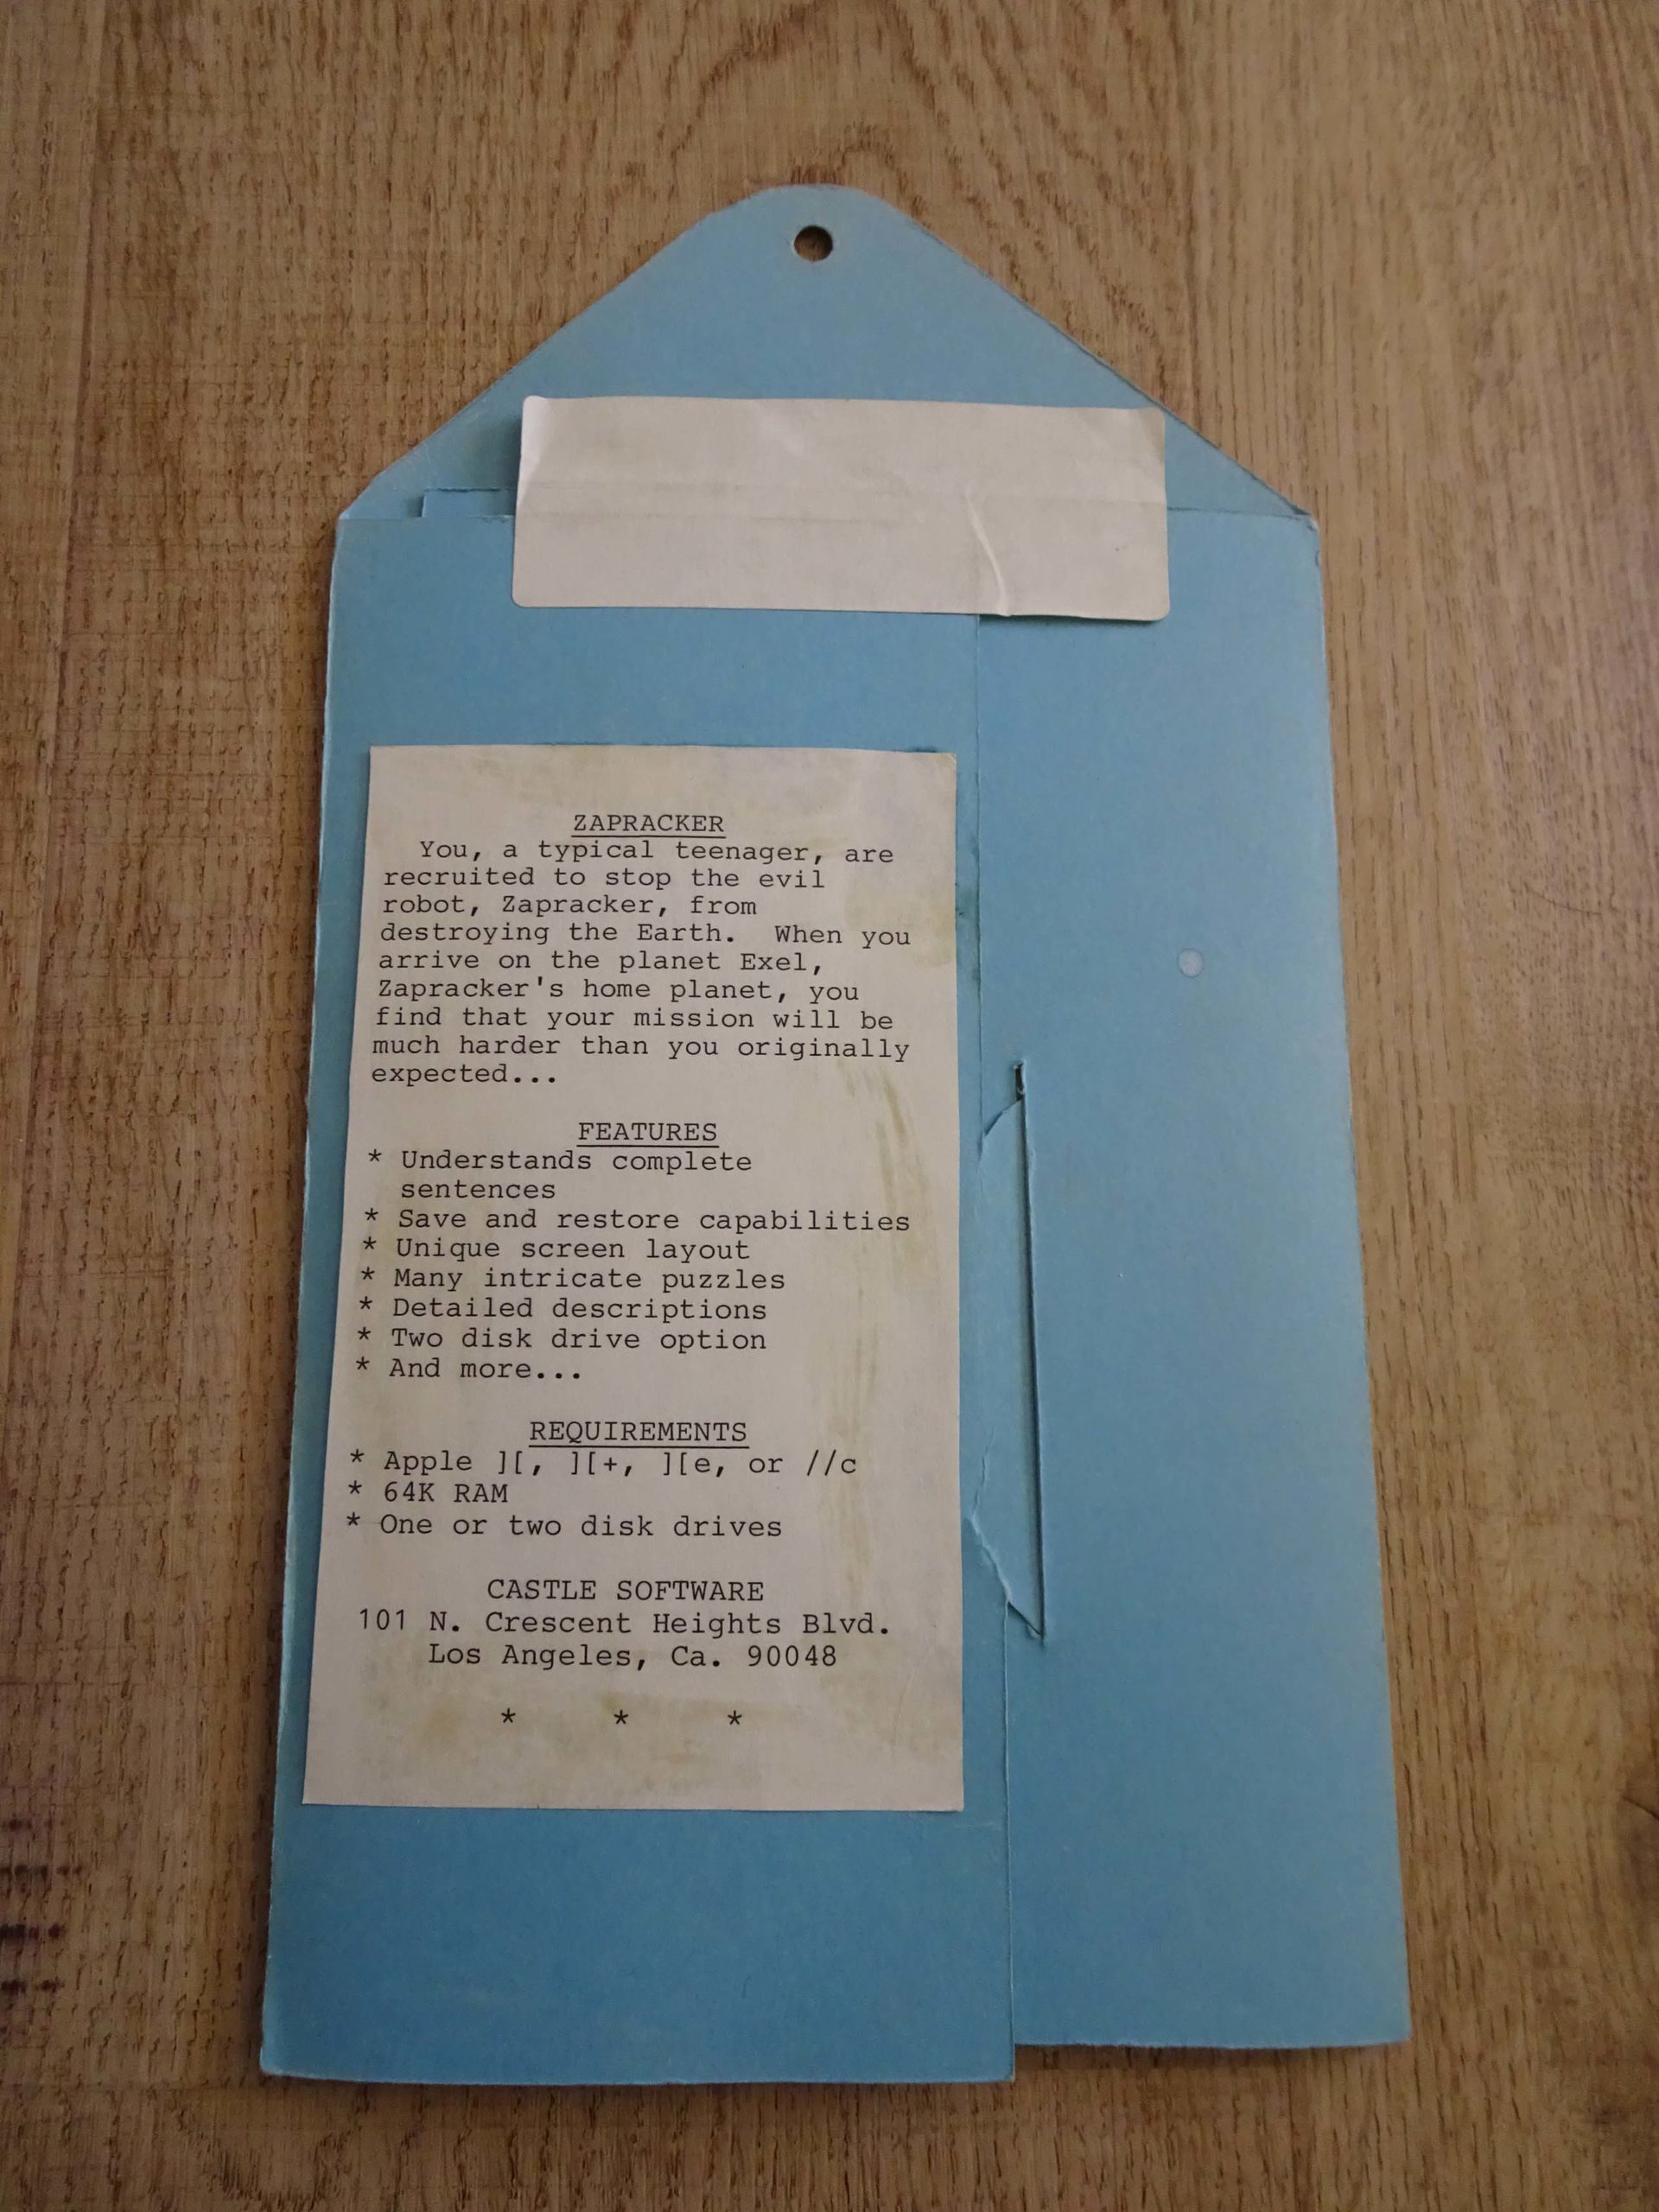 ZAPRACKER
You, a typical teenager, are
recruited to stop the evil
robot, Zapracker, from
destroying the Earth.  When you
arrive on the planet Exel,
Zapracker's home planet, you
find that your mission will be
much harder than you originally
expected...
FEATURES
* Understands complete
sentences
* Save and restore capabilities
* Unique screen layout
* Many intricate puzzles
* Detailed descriptions
* Two disk drive option
* And more...
REQUIREMENTS
* Apple ][, ][+, ][e, or //c
* 64K RAM
* One or two disk drives
CASTLE SOFTWARE
101 N. Crescent Heights Blvd.
Los Angeles, Ca. 90048
* * *